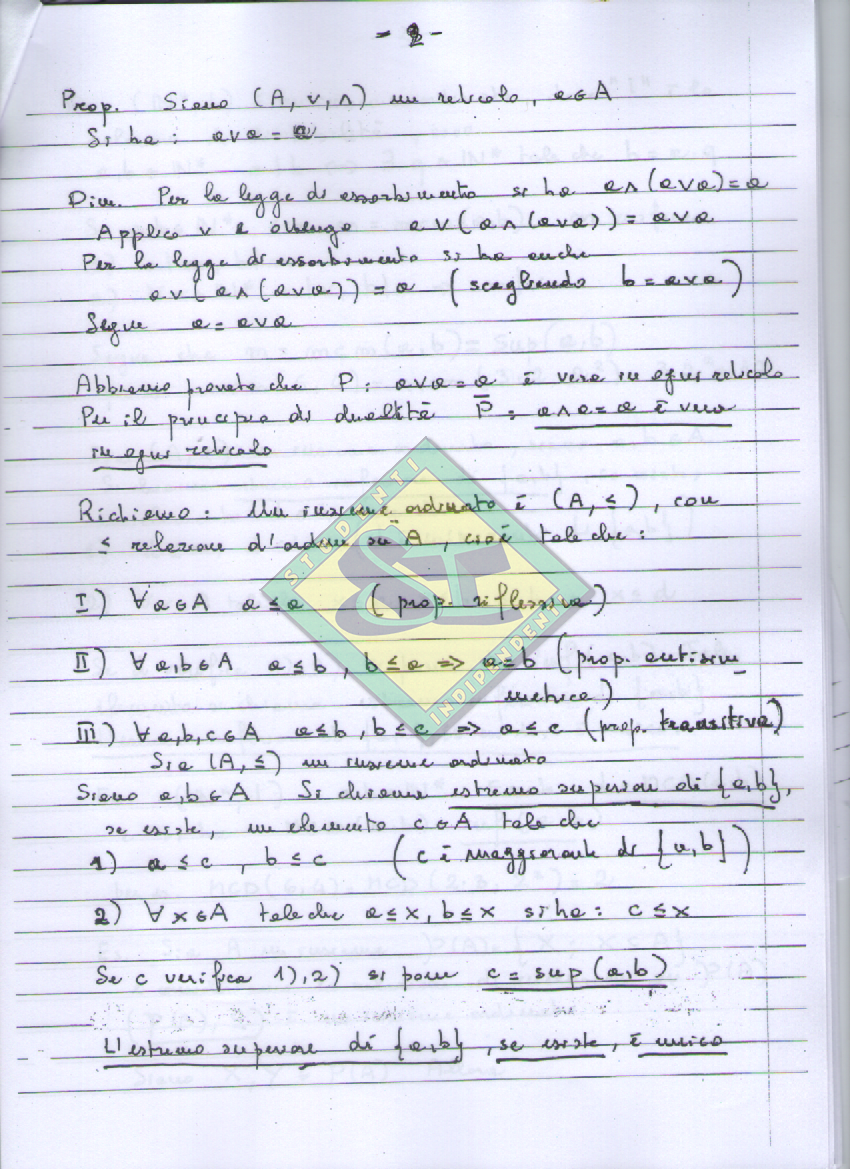 - 2 -
Prop. Siano (A, ∨, ∧) un reticolo, a∈A
Si ha: a∨a = a
Dim. Per la legge di assorbimento si ha a∧(a∨a)=a
Applico ∨ e ottengo a∨(a∧(a∨a)) = a∨a
Per la legge di assorbimento si ha anche
a∨(a∧(a∨a)) = a (scegliendo b=a∨a)
Segue a=a∨a
Abbiamo provato che P: a∨a=a è vera in ogni reticolo
Per il principio di dualità P̄: a∧a=a è vera
in ogni reticolo
Richiamo: Un insieme ordinato è (A, ≤), con
≤ relazione d'ordine su A, cioè tale che:
I) ∀a∈A a≤a (prop. riflessiva)
II) ∀a,b∈A a≤b, b≤a => a=b (prop. antisim_
metrica)
III) ∀a,b,c∈A a≤b, b≤c => a≤c (prop. transitiva)
Sia (A,≤) un insieme ordinato
Siano a,b∈A Si chiama estremo superiore di {a,b},
se esiste, un elemento c∈A tale che
1) a≤c, b≤c (c è maggiorante di {a,b})
2) ∀x∈A tale che a≤x, b≤x si ha: c≤x
Se c verifica 1),2) si pone c=sup(a,b)
L'estremo superiore di {a,b}, se esiste, è unico
STUDENTI
INDIPENDENTI